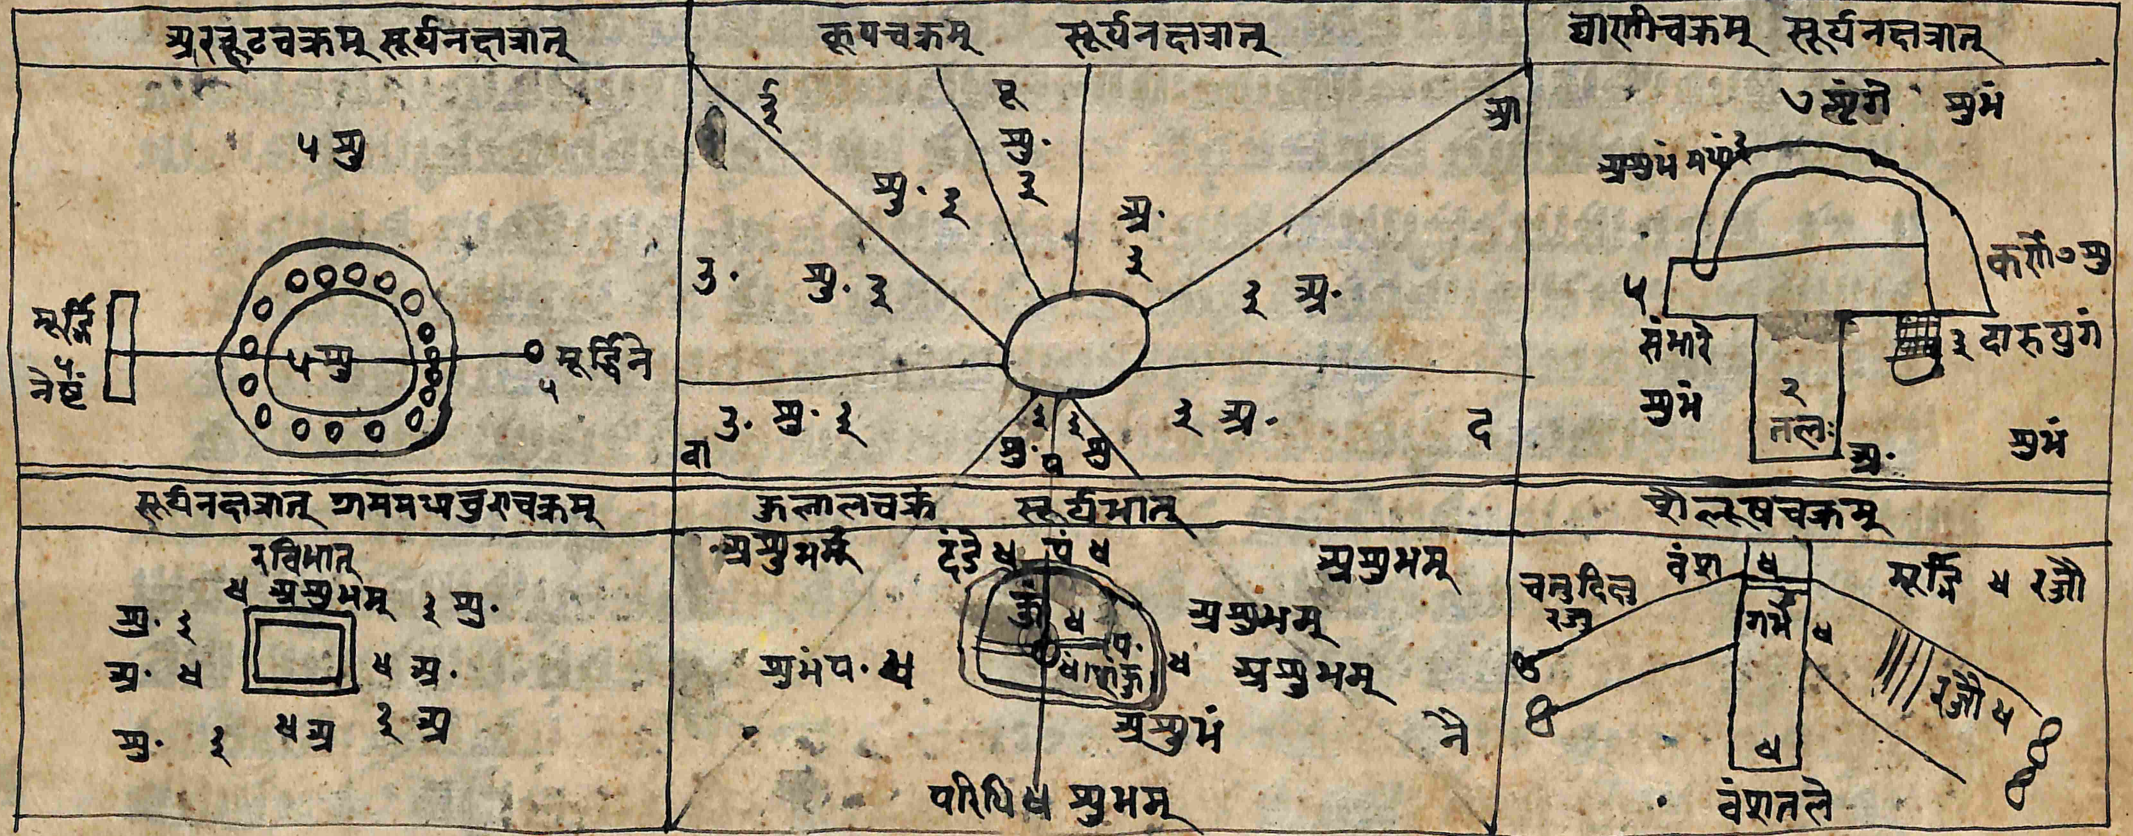 अरहटचक्रम् सूर्यनक्षत्रात्
५ शु
मूर्द्ध्नि
५
नेष्टं
५ शु
मूर्द्ध्नि ने
५
कूपचक्रम् सूर्यनक्षत्रात्
ई
पू
शु.
३
आ
शु. ३
अ.
३
उ. शु. ३
३ अ.
उ. शु. ३
३ अ.
वा
द
३ ३
शु. प शु
सूर्यनक्षत्रात्
७ शृंगे शुभं
अशुभं मध्ये ३
कर्णे ७ शु
५
संभारे
शुभं
३ दारुयुगं
शुभं
२
तलः
अ.
सूर्यनक्षत्रात्
रविभात्
४ अशुभम्
शु. ३
३ शु.
अ. ४
४ अ.
शु. ३
४ अ
३ अ
कुलालचक्रं सूर्यभात्
अशुभम्
दंडे ४
पं ४
अशुभम्
अशुभम्
४
शुभं प. ४
४ अशुभम्
अशुभं
नै
परिधि ४ शुभम्
शैलूषचक्रम्
चतुर्दिक्षु
रज्जु
वंश
४
मूर्द्ध्नि ४ रज्जौ
गर्भे ४
रज्जौ ४
४
वंशतले